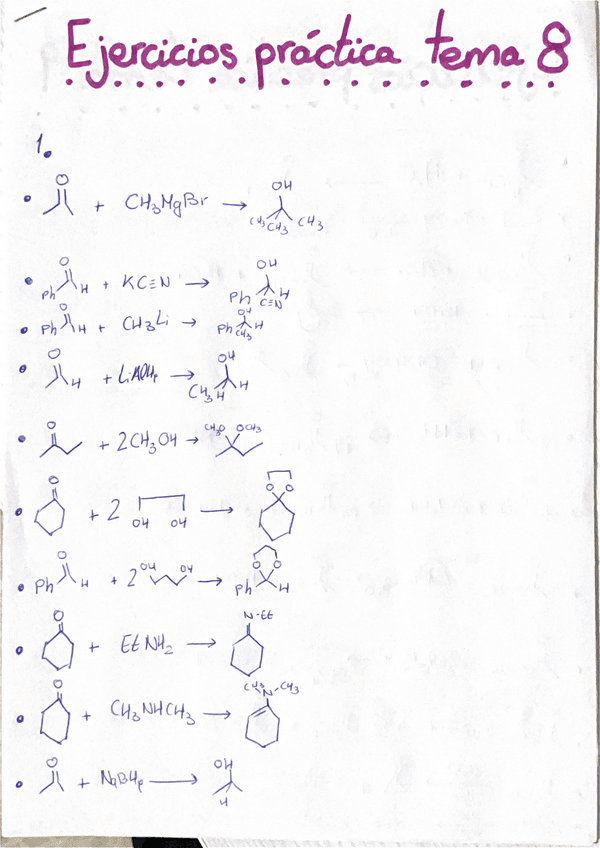 Ejercicios práctica tema 8
1.
O
+ CH3MgBr → OH CH3 CH3 CH3
O Ph H + KC≡N → OH Ph C≡N H
O Ph H + CH3Li → OH Ph CH3 H
O H + → OH CH3 H H
O + 2CH3OH → CH3O OCH3
O + 2 OH OH → O O
O Ph H + 2 OH OH → O O Ph H
O + EtNH2 → N-Et
O + CH3NHCH3 → CH3 N CH3
O + → OH H